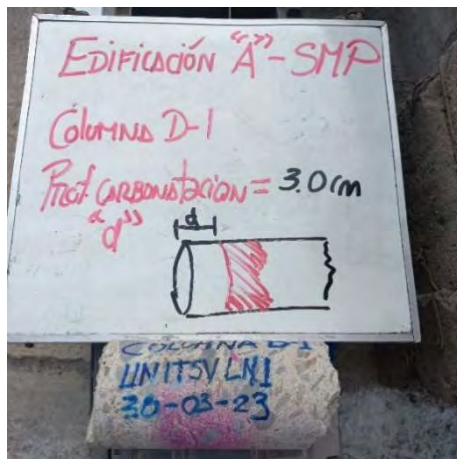 EDIFICACIÓN "A"-SMP
COLUMNA D-1
PROF. CARBONATACION = 3.0 cm
"d"
d
COLUMNA D-1
30-03-23